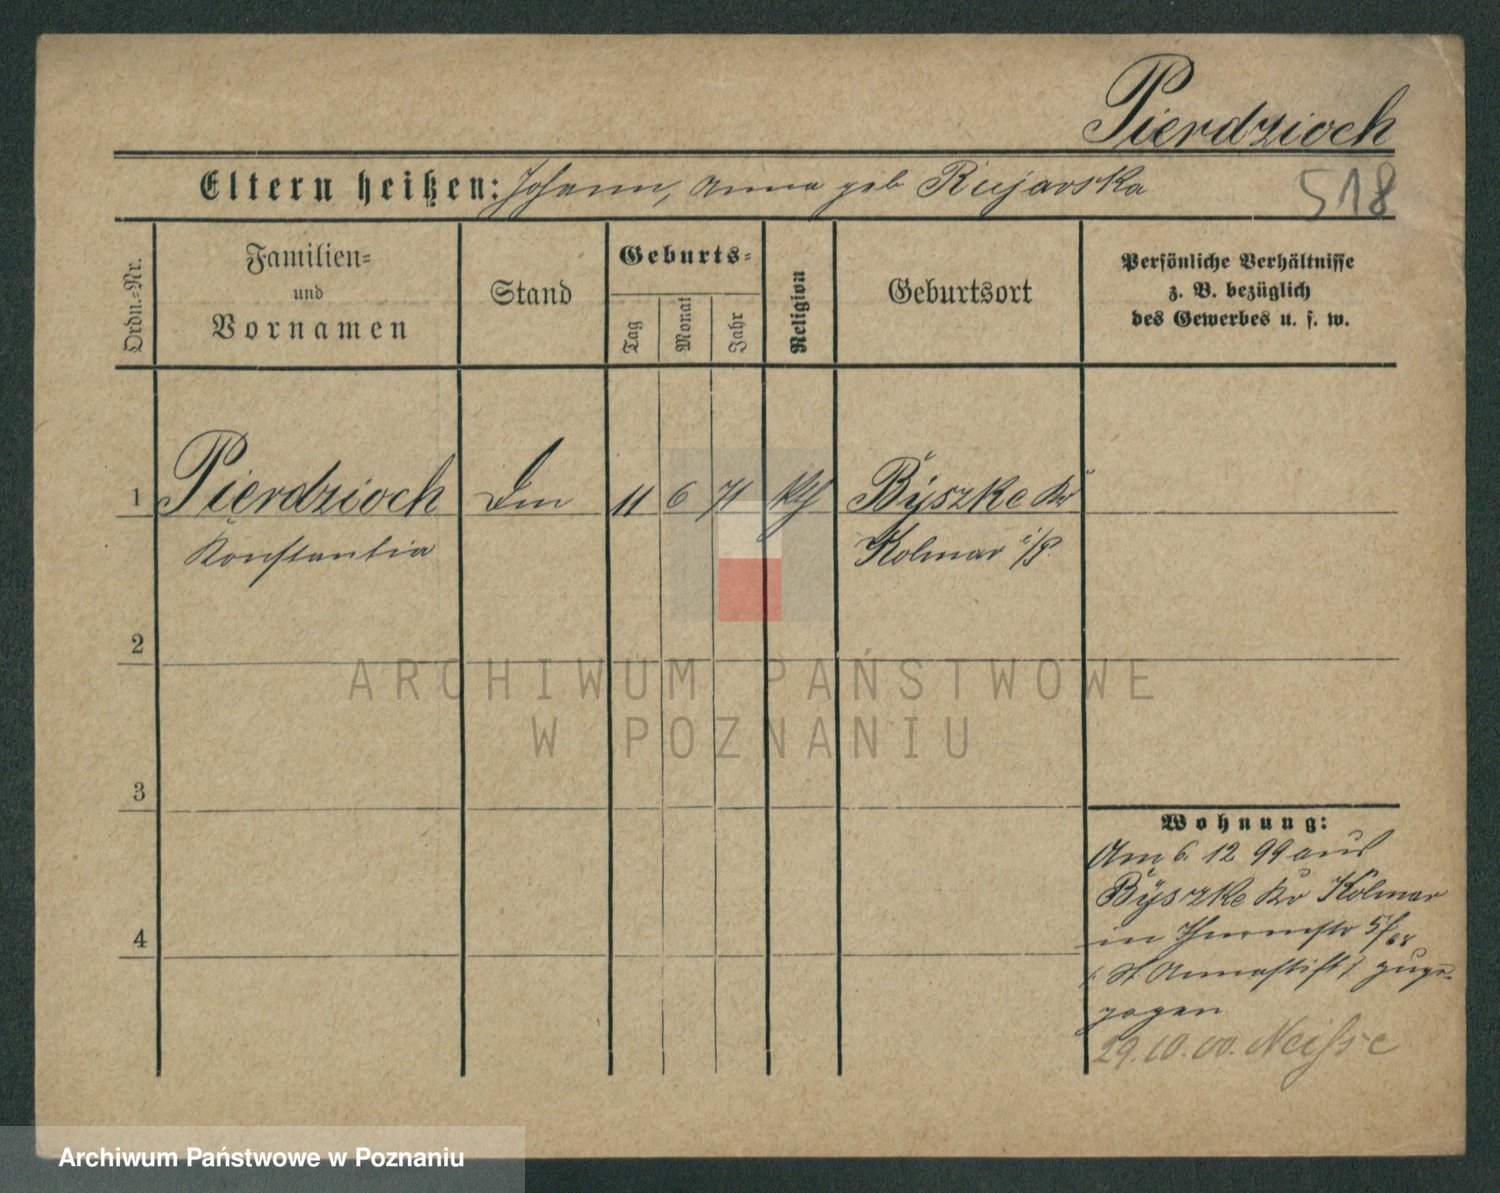 Pierdzioch
Eltern heißen: Johann, Anna geb Rujavska
518
Ordn.-Nr.
Familien-
und
Vornamen
Stand
Geburts-
Tag
Monat
Jahr
Religion
Geburtsort
Persönliche Verhältnisse
z. B. bezüglich
des Gewerbes u. s. w.
1 Pierdzioch 11 6 71 kth Byszke Kr
Konstantia Kolmar i/P.
2
ARCHIWUM PAŃSTWOWE
W POZNANIU
3
Wohnung:
Am 6. 12 99 aus
Byszke Kr Kolmar
4
in Thurmstr
St Annastift zuge-
zogen
29.10.00. Neisse
Archiwum Państwowe w Poznaniu